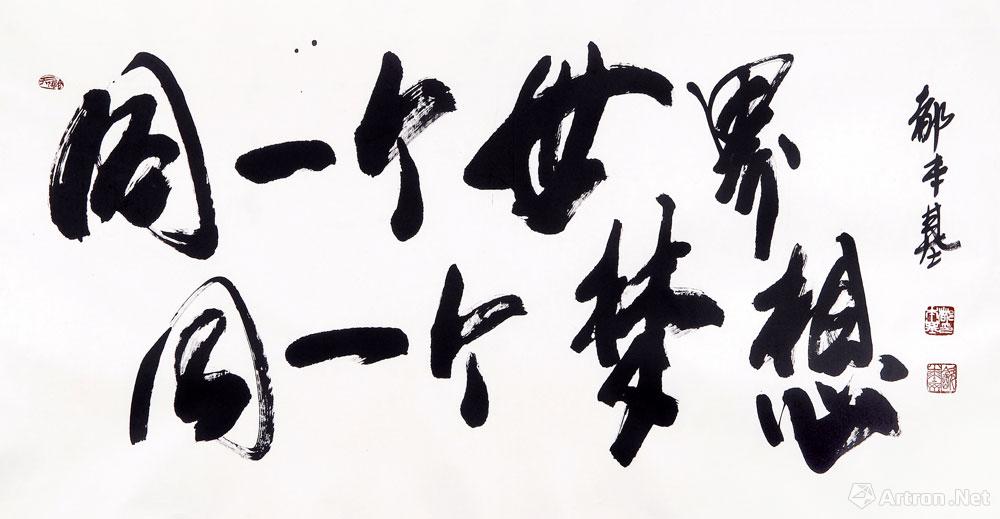 同一个世界
同一个梦想
都本基
Artron.Net